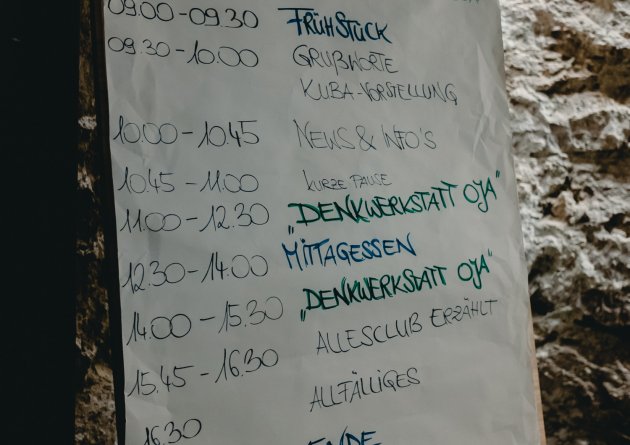 09.00-09.30 FRÜHSTÜCK
09.30-10.00 GRUßWORTE
KUBA-VORSTELLUNG
10.00-10.45 NEWS & INFO'S
10.45-11.00 KURZE PAUSE
11.00-12.30 „DENKWERKSTATT OJA"
12.30-14.00 MITTAGESSEN
14.00-15.30 „DENKWERKSTATT OJA"
15.45-16.30 ALLESCLUB ERZÄHLT
ALLFÄLLIGES
16.30 ENDE